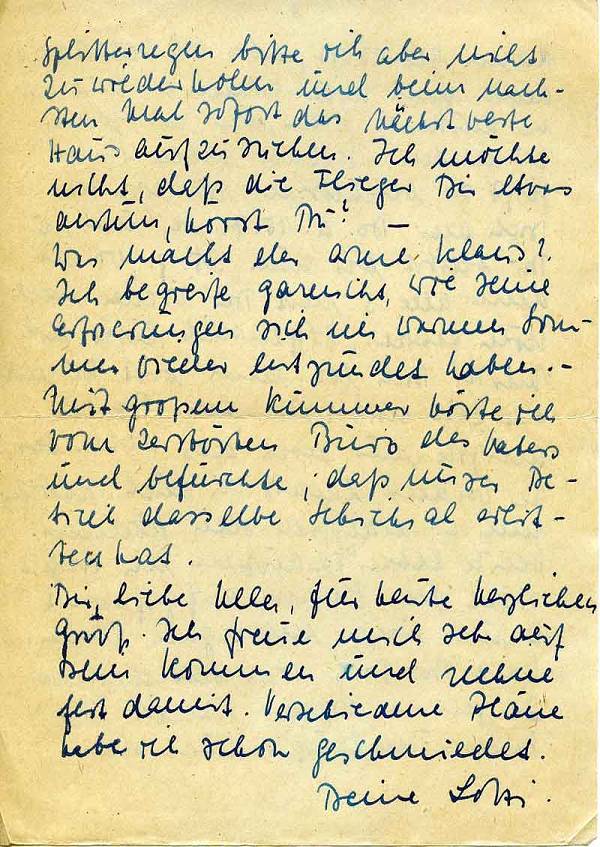 Splitterregen bitte ich aber nicht
zu wiederholen und beim näch-
sten Mal sofort das nächstbeste
Haus aufzusuchen. Ich möchte
nicht, daß die Flieger Dir etwas
antun, hörst Du? —
Was macht der arme Klaus?
Ich begreife garnicht, wie seine
Erfrierungen sich im warmen Som-
mer wieder entzündet haben. -
Mit großem Kummer hörte ich
vom zerstörten Büro des Vaters
und befürchte, daß unser Be-
trieb dasselbe Schicksal erlit-
ten hat.
Dir, liebe für heute herzlichen
Gruß. Ich freue mich sehr auf
Dein Kommen und rechne
fest damit. Verschiedene Pläne
habe ich schon geschmiedet.
Deine